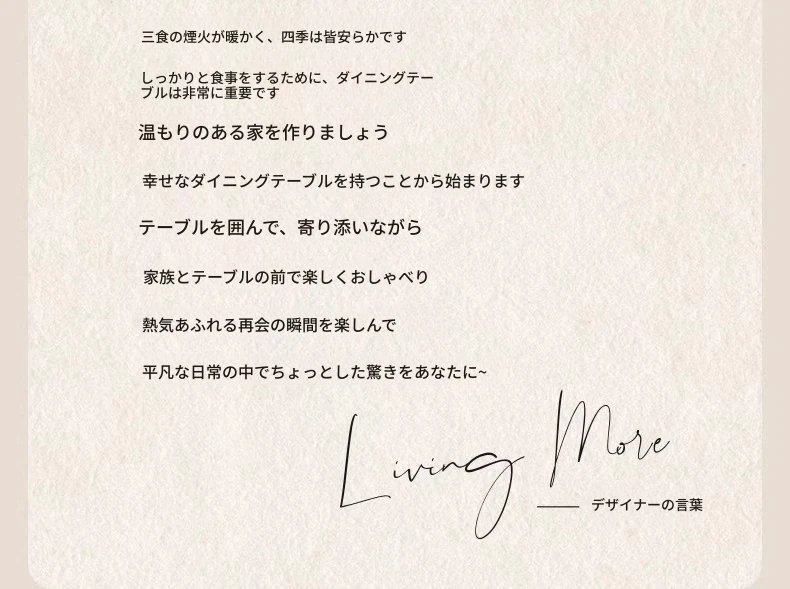 三食の煙火が暖かく、四季は皆安らかです
しっかりと食事をするために、ダイニングテー
ブルは非常に重要です
温もりのある家を作りましょう
幸せなダイニングテーブルを持つことから始まります
テーブルを囲んで、寄り添いながら
家族とテーブルの前で楽しくおしゃべり
熱気あふれる再会の瞬間を楽しんで
平凡な日常の中でちょっとした驚きをあなたに~
Living More
—— デザイナーの言葉